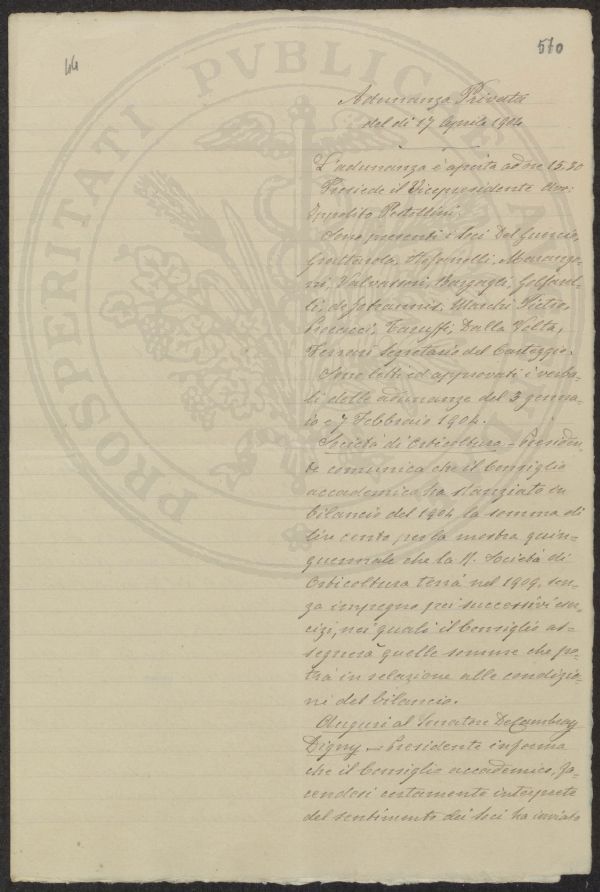 44
570
PROSPERITATI PVBLICAE
Adunanza Privata
del dì 17 Aprile 1904
L'adunanza è aperta ad ore 15.30
Presiede il Vicepresidente
Ippolito Pestellini.
Sono presenti i Soci Del Guercio,
Grottarola, Marango-
ni, Valvassori, Bargagli,
de Johannis, Marchi Pietro,
Taruffi, Dalla Volta,
Ferrari Segretario del Carteggio.
Sono letti ed approvati i verba-
li delle adunanze del 3 genna-
io e 7 Febbraio 1904.
Società di Orticoltura – Presiden-
te comunica che il Consiglio
accademico ha stanziato in
bilancio del 1904 la somma di
lire cento per la mostra quin-
quennale che la R. Società di
Orticoltura terrà nel 1909, sen-
za impegno pei successivi eser-
cizi, nei quali il Consiglio as-
segnerà quelle somme che po-
trà in relazione alle condizio-
ni del bilancio.
Auguri al Senatore De Cambray
Digny – Presidente informa
che il Consiglio accademico, fa-
cendosi certamente interprete
del sentimento dei Soci ha inviato